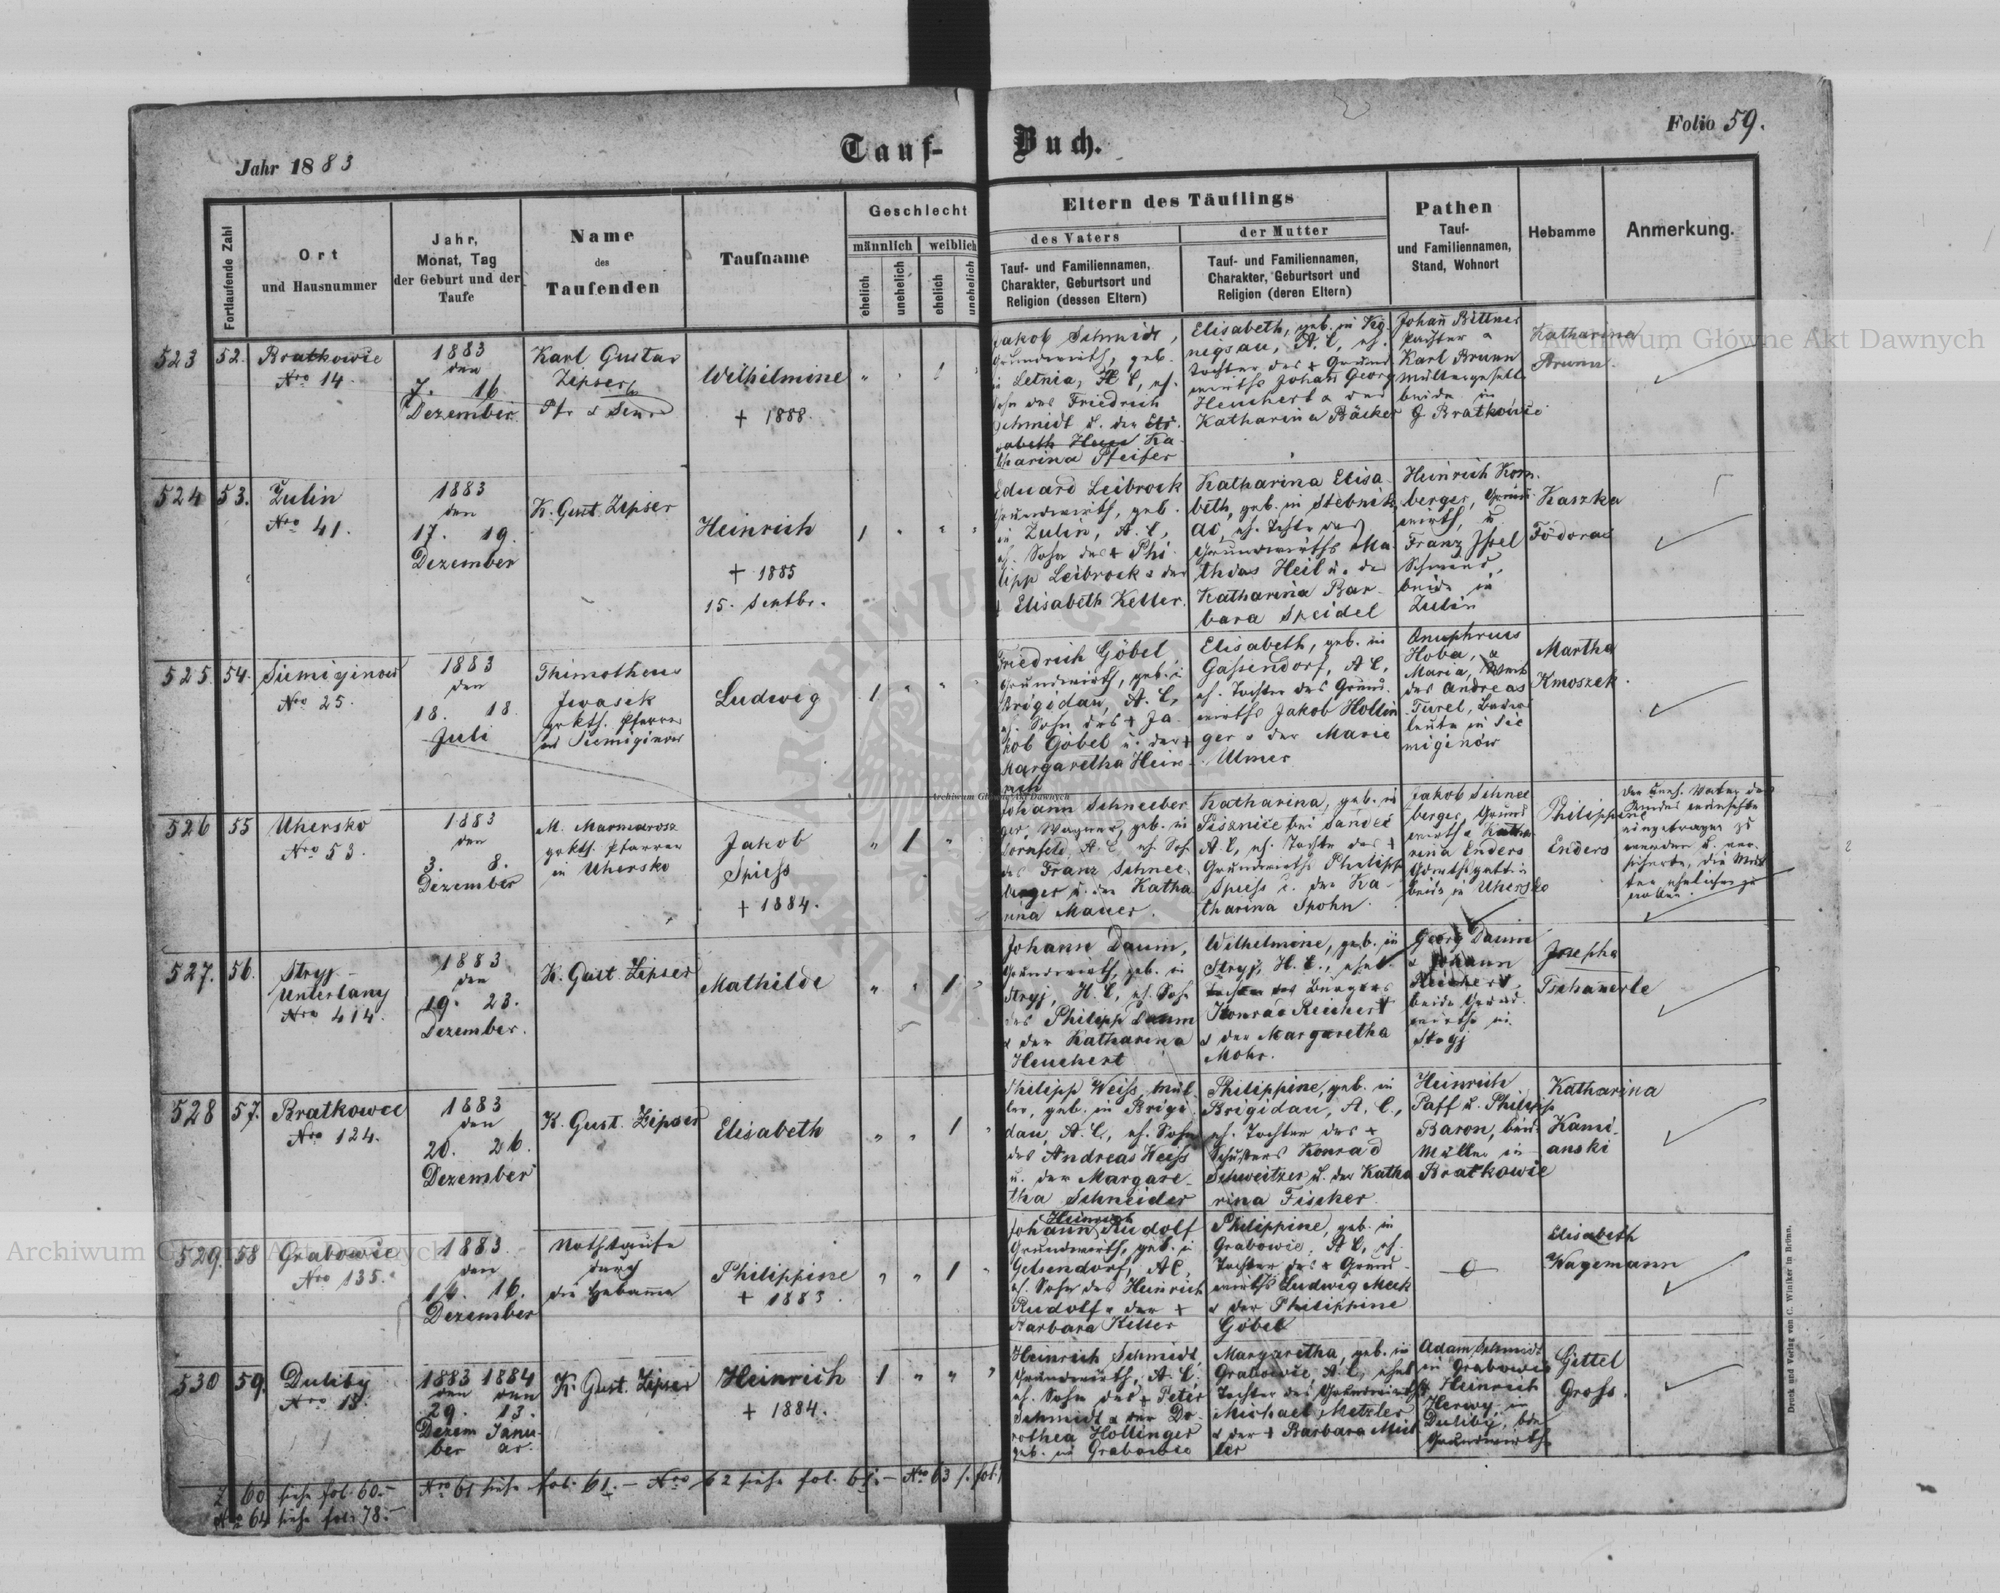 Folio 59.
Jahr 1883
Tauf-Buch.
Fortlaufende Zahl
Ort
und Hausnummer
Jahr,
Monat, Tag
der Geburt und der
Taufe
Name
des
Taufenden
Taufname
Geschlecht
männlich
weiblich
ehelich
unehelich
ehelich
unehelich
Eltern des Täuflings
des Vaters
Tauf- und Familiennamen,
Charakter, Geburtsort und
Religion (dessen Eltern)
der Mutter
Tauf- und Familiennamen,
Charakter, Geburtsort und
Religion (deren Eltern)
Pathen
Tauf-
und Familiennamen,
Stand, Wohnort
Hebamme
Anmerkung.
523 52.
Bratkowce
Nro 14.
1883
den
7. 16.
Dezember
Karl Gustav
Zipser
Pfr & Senr
Wilhelmine
+ 1888.
Jakob Schmidt,
Grundwirth, geb.
in Letnia, A C, eh.
Sohn des Friedrich
Schmidt u. der Eli-
sabeth Ka-
tharina Pfeifer
Elisabeth, geb. in Kö-
nigsau, A. C, eh.
Tochter des + Grund
wirths Johann Georg
Heuchert & der
Katharina Bäcker
Johann Bittner
Pächter &
Karl Brunn
Müllergeselle
beide in
Bratkowce
Katharina
Brunn.
524 53.
Zulin
Nro 41.
1883
den
17. 19.
Dezember
K. Gust. Zipser
Heinrich
+ 1885
15. Septbr.
1
Eduard Leibrock
Grundwirth, geb.
in Zulin, A. C,
eh. Sohn des + Phi-
lipp Leibrock & der
+ Elisabeth Keller.
Katharina Elisa-
beth, geb. in Stebnik,
AC, eh. Tochter des
Grundwirths Ma-
thias Heil u. der
Katharina Bar-
bara Speidel
Heinrich Korn-
berger, Grund
wirth, u.
Franz Issel
Schmied,
beide in
Zulin
Kaszka
Fodorac
525. 54.
Siemiginow
Nro 25.
1883
den
18. 18
Juli
Thimotheus
Iwasik
grkth. Pfarrer
in Siemiginow
Ludwig
1
Friedrich Göbel
Grundwirth, geb. in
Brigidau, A. C,
eh. Sohn des + Ja-
kob Göbel u. der +
Margaretha Hein-
rich
Elisabeth, geb. in
Gassendorf, A C,
eh. Tochter des Grund-
wirths Jakob Hollin
ger & der Marie
Ulmer
Onuphrius
Hoba, &
Maria, Weib
des Andreas
Turel, Bauers
leute in Sie
miginow
Martha
Kmoszek.
526 55
Uhersko
Nro 53.
1883
den
3. 8.
Dezember
M. Marmarosz
grkth. Pfarrer
in Uhersko
Jakob
Spiess
+ 1884.
1
Johann Schneeber
ger, Wagner, geb. in
Dornfeld, A C, eh. Sohn
des Franz Schnee-
berger u. der Katha
rina Mauer.
Katharina, geb. in
bei Sandec
A. C, eh. Tochter des +
Grundwirths Philipp
Spiess u. der Ka-
tharina Spohn.
Jakob Schnee
berger, Grund
wirth & Katha
rina Enders
beide in Uhersko
Philippine
Enders
Der uneh. Vater des
Kindes wünschte
eingetragen zu
werden u. ver-
sicherte, die Mut
ter ehelichen zu
wollen.
527. 56.
Stryj
Unterlany
Nro 414.
1883
den
19. 23.
Dezember.
K. Gust. Zipser
Mathilde
1
Johann Daum,
Grundwirth, geb. in
Stryj, H. C, eh. Sohn
des Philipp Daum
& der Katharina
Heuchert
Wilhelmine, geb. in
Stryj, H. C., ehel.
Tochter des Bürgers
Konrad Reichert
& der Margaretha
Mohr.
Georg Daum
& Johann
Reichert,
beide Grund
wirthe in
Stryj
Josepha
Tschanerle
528 57.
Bratkowce
Nro 124.
1883
den
20. 26.
Dezember
K. Gust. Zipser
Elisabeth
1
Philipp Weiss, Mül-
ler, geb. in Brigi-
dau, A. C., eh. Sohn
des Andreas Weiss
u. der Margare-
tha Schneider
Philippine, geb. in
Brigidau, A. C.,
eh. Tochter des +
Schusters Konrad
Schweitzer u. der Katha
rina Fischer.
Heinrich
Paff u. Philipp
Baron, beide
Müller in
Bratkowce
Katharina
Kami-
anski
529. 58
Grabowce
Nro 135.
1883
den
16. 16.
Dezember
Nothtaufe
durch
die Hebamme
Philippine
+ 1883.
1
Heinrich
Johann Rudolf
Grundwirth, geb. in
Gelsendorf, AC,
eh. Sohn des Heinrich
Rudolf & der +
Barbara Keller
Philippine, geb. in
Grabowce, A C, eh.
Tochter des + Grund-
wirths Ludwig Meck
& der Philippine
Göbel
Elisabeth
Wagemann
530 59.
Duliby
Nro 18.
1883 1884
den den
29. 13.
Dezem Janu-
ber ar.
K. Gust. Zipser
Heinrich
+ 1884.
1
Heinrich Schmidt,
Grundwirth, A. C.
eh. Sohn des + Peter
Schmidt & der Do-
rothea Hollinger
geb. in Grabowce
Margaretha, geb. in
Grabowce, A. C, ehel
Tochter des Grundwirths
Michael Metzler
& der + Barbara Mül
ler
Adam Schmidt
in Grabowce
& Heinrich
Herwy in
Duliby, beide
Grundwirthe
Gittel
Gross.
No 60 siehe fol. 60.– Nro 61 siehe fol. 61.– Nro 62 siehe fol. 61.– Nro 63 s. fol.
Nro 64 siehe fol. 78.–
Druck und Verlag von C. Winiker in Brünn.
Archiwum Główne Akt Dawnych
Archiwum Główne Akt Dawnych
Archiwum Główne Akt Dawnych